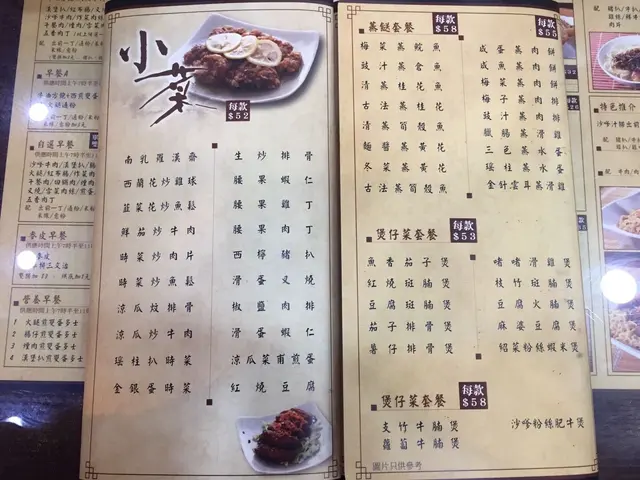 小菜
每款
$52
南乳羅漢齋
西蘭花炒雞球
韮菜花炒魚鬆
鮮茄炒牛肉
時菜炒肉片
時菜炒魚鬆
涼瓜炆排骨
涼瓜炒牛肉
瑤柱扒時菜
金銀蛋時菜
生炒排骨
腰果蝦仁
腰果雞丁
腰果肉丁
西檸豬扒
滑蛋叉燒
椒鹽肉排
滑蛋蝦仁
涼瓜菜甫煎蛋
紅燒豆腐
蒸餸套餐
每款
$58
梅菜蒸鯇魚
豉汁蒸倉魚
清蒸桂花魚
古法蒸桂花魚
清蒸筍殼魚
麵醬蒸黃花魚
冬菜蒸黃花魚
古法蒸筍殼魚
每款
$55
咸蛋蒸肉餅
咸魚蒸肉餅
梅菜蒸肉餅
梅子蒸肉排
豉汁蒸肉排
臘腸蒸滑雞
三色蒸水蛋
瑤柱蒸水蛋
金針雲耳蒸滑雞
煲仔菜套餐
每款
$53
魚香茄子煲
紅燒斑腩煲
豆腐斑腩煲
茄子排骨煲
薯仔排骨煲
啫啫滑雞煲
枝竹斑腩煲
豆腐火腩煲
麻婆豆腐煲
紹菜粉絲蝦米煲
煲仔菜套餐
每款
$58
支竹牛腩煲
蘿蔔牛腩煲
沙嗲粉絲肥牛煲
圖片只供參考
早餐A
自選早餐
麥皮早餐
營養早餐
1 火腿煎雙蛋多士
2 腸仔煎雙蛋多士
3 燻肉煎雙蛋多士
4 漢堡扒煎雙蛋多士
特色推介